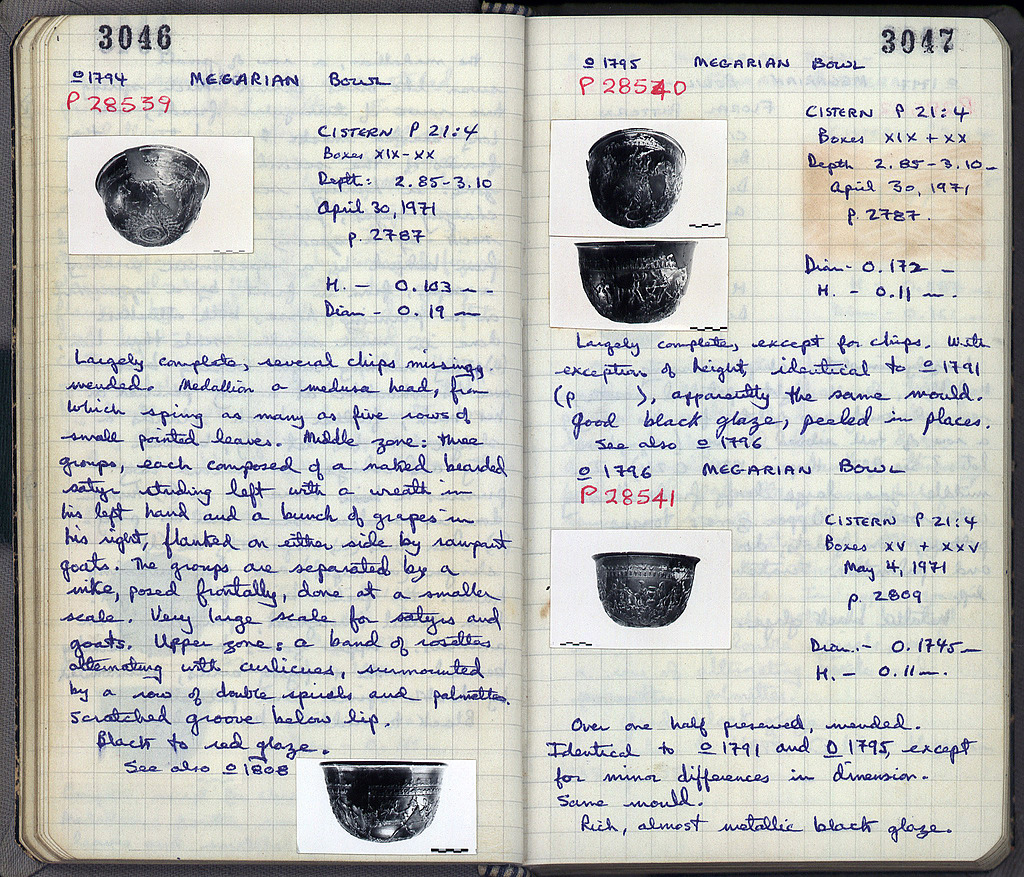 3046
o 1794 MEGARIAN BOWL
P 28539
CISTERN P 21:4
Boxes XIX-XX
Depth: 2.85-3.10
April 30, 1971
p. 2787
H. - 0.103 m -
Diam - 0.19 m
Largely complete, several chips missing.
mended. Medallion a medusa head, from
which spring as many as five rows of
small pointed leaves. Middle zone: three
groups, each composed of a naked bearded
satyr striding left with a wreath in
his left hand and a bunch of grapes in
his right, flanked on either side by rampant
goats. The groups are separated by a
nike, posed frontally, done at a smaller
scale. Very large scale for satyrs and
goats. Upper zone: a band of rosettes
alternating with curlicues, surmounted
by a row of double spirals and palmettes.
Scratched groove below lip.
Black to red glaze.
See also o 1808
3047
o 1795 MEGARIAN BOWL
P 28540
CISTERN P 21:4
Boxes XIX + XX
Depth 2.85-3.10 m
April 30, 1971
p. 2787.
Diam - 0.172 m
H. - 0.11 m.
Largely complete, except for chips. With
exception of height, identical to o 1791
(p ), apparently the same mould.
Good black glaze, peeled in places.
See also o 1796
o 1796 MEGARIAN BOWL
P 28541
CISTERN P 21:4
Boxes XV + XXV
May 4, 1971
p. 2809
Diam. - 0.1745 m
H. - 0.11 m.
Over one half preserved, mended.
Identical to o 1791 and o 1795, except
for minor differences in dimension.
Same mould.
Rich, almost metallic black glaze.